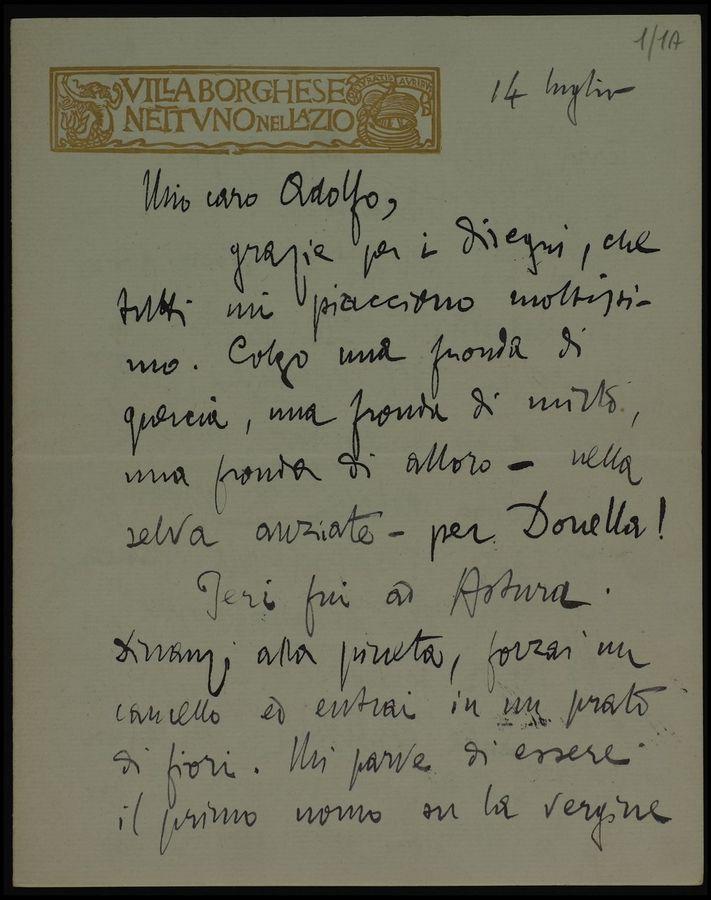 1/1A
VILLA BORGHESE
NETTVNO NEL LAZIO
14 luglio
Mio caro Adolfo,
grazie per i disegni, che
tutti mi piacciono moltissi-
mo. Colgo una fronda di
quercia, una fronda di mirto,
una fronda di alloro - nella
selva anziate - per Donella!
Jeri fui ad Astura.
Dinanzi alla pineta, forzai un
cancello ed entrai in un prato
di fiori. Mi parve di essere
il primo uomo su la vergine